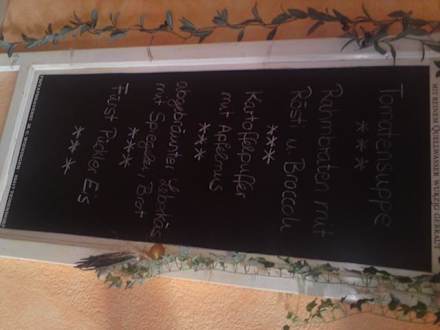 Tomatensuppe
***
Rahmbraten mit
Rösti u Broccoli
***
Kartoffelpuffer
mit Apfelmus
***
abgebräunter Leberkäs
mit Spiegelei, Brot
***
Fürst Pückler Eis
***